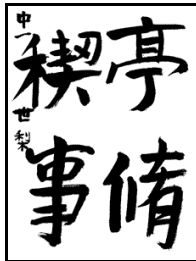 亭脩
稧事
中一 世梨